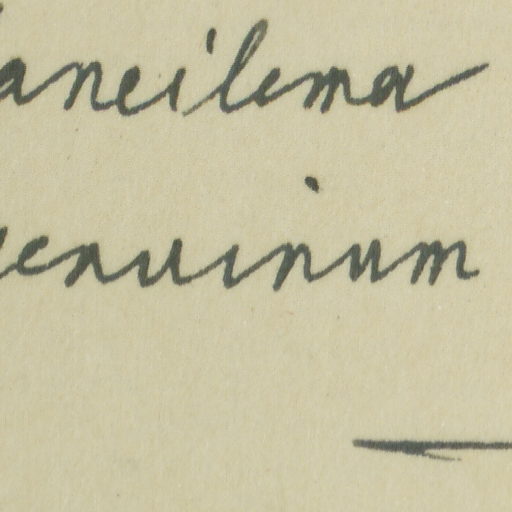 aneilema
enuinum